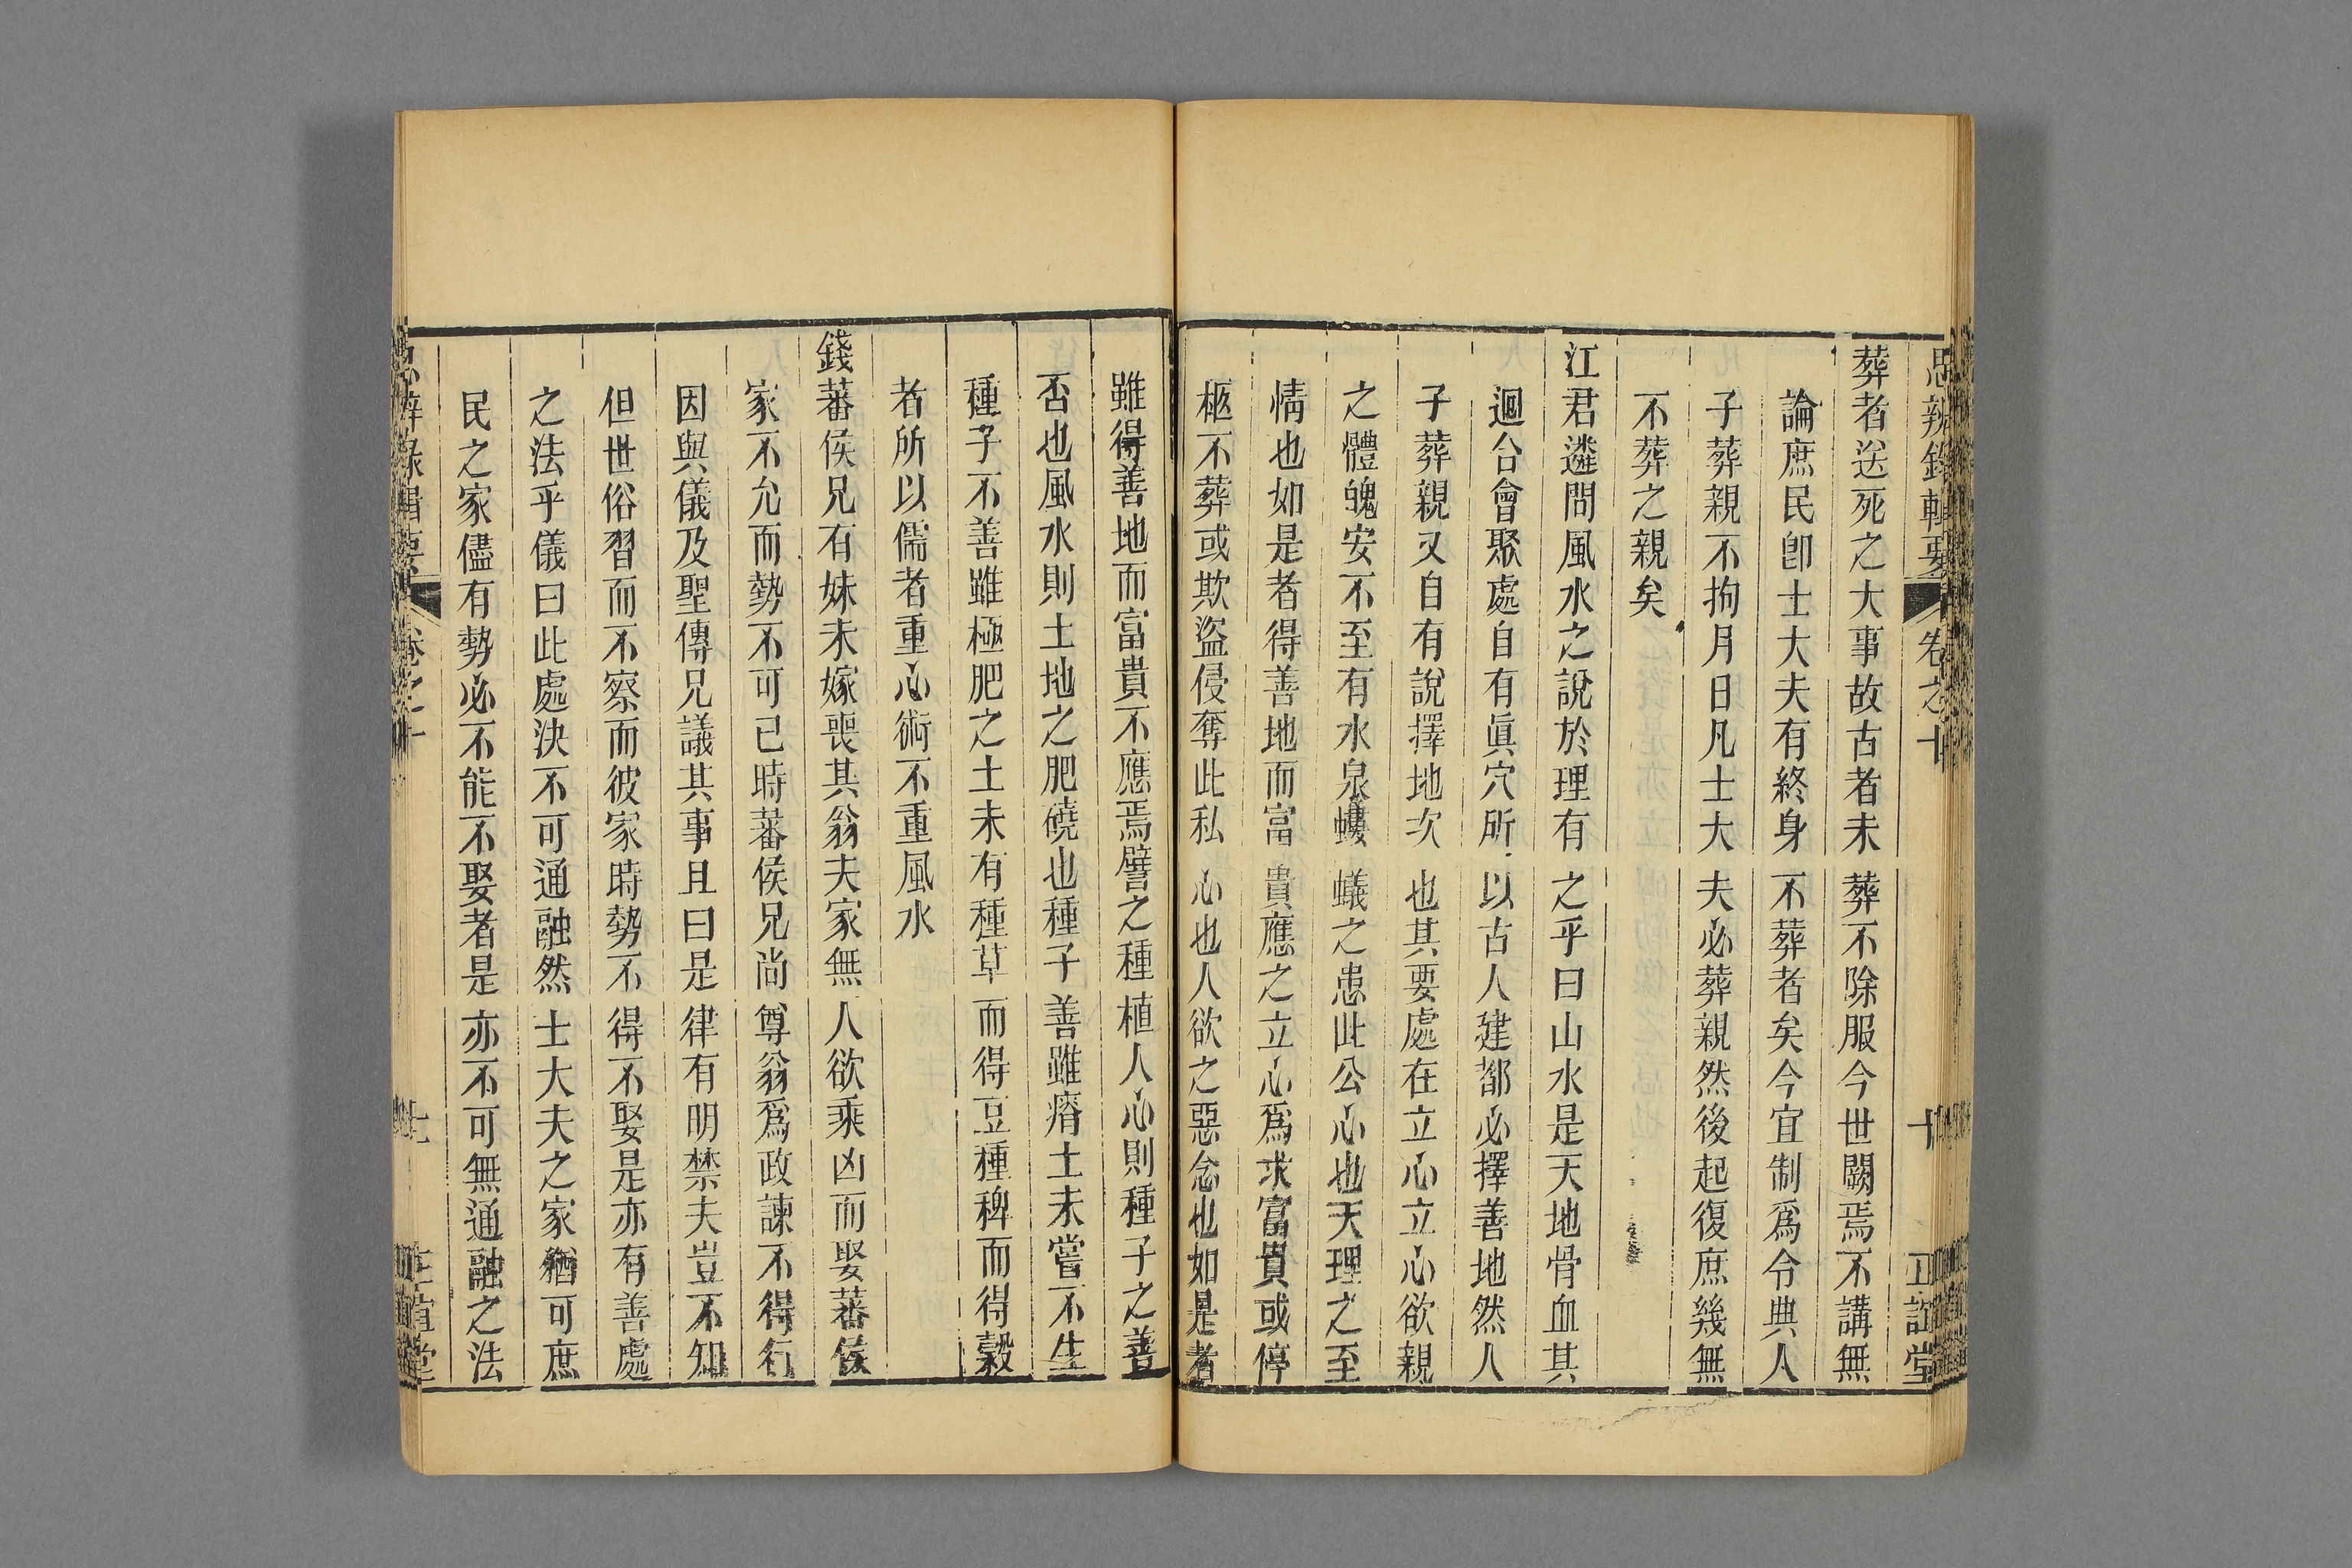 思辨錄輯要 卷之十 十 正誼堂
葬者送死之大事故古者未葬不除服今世闕焉不講無
論庶民卽士大夫有終身不葬者矣今宜制爲令典人
子葬親不拘月日凡士大夫必葬親然後起復庶幾無
不葬之親矣
江君遴問風水之說於理有之乎曰山水是天地骨血其
迴合會聚處自有眞穴所以古人建都必擇善地然人
子葬親又自有說擇地次也其要處在立心立心欲親
之體魄安不至有水泉螻蟻之患此公心也天理之至
情也如是者得善地而富貴應之立心爲求富貴或停
柩不葬或欺盜侵奪此私心也人欲之惡念也如是者
雖得善地而富貴不應焉譬之種植人心則種子之善
否也風水則土地之肥磽也種子善雖瘠土未嘗不生
種子不善雖極肥之土未有種草而得豆種稗而得穀
者所以儒者重心術不重風水
錢蕃侯兄有妹未嫁喪其翁夫家無人欲乘凶而娶蕃侯
家不允而勢不可已時蕃侯兄尚尊翁爲政諫不得行
因與儀及聖傳兄議其事且曰是律有明禁夫豈不知
但世俗習而不察而彼家時勢不得不娶是亦有善處
之法乎儀曰此處決不可通融然士大夫之家猶可庶
民之家儘有勢必不能不娶者是亦不可無通融之法
卷之十